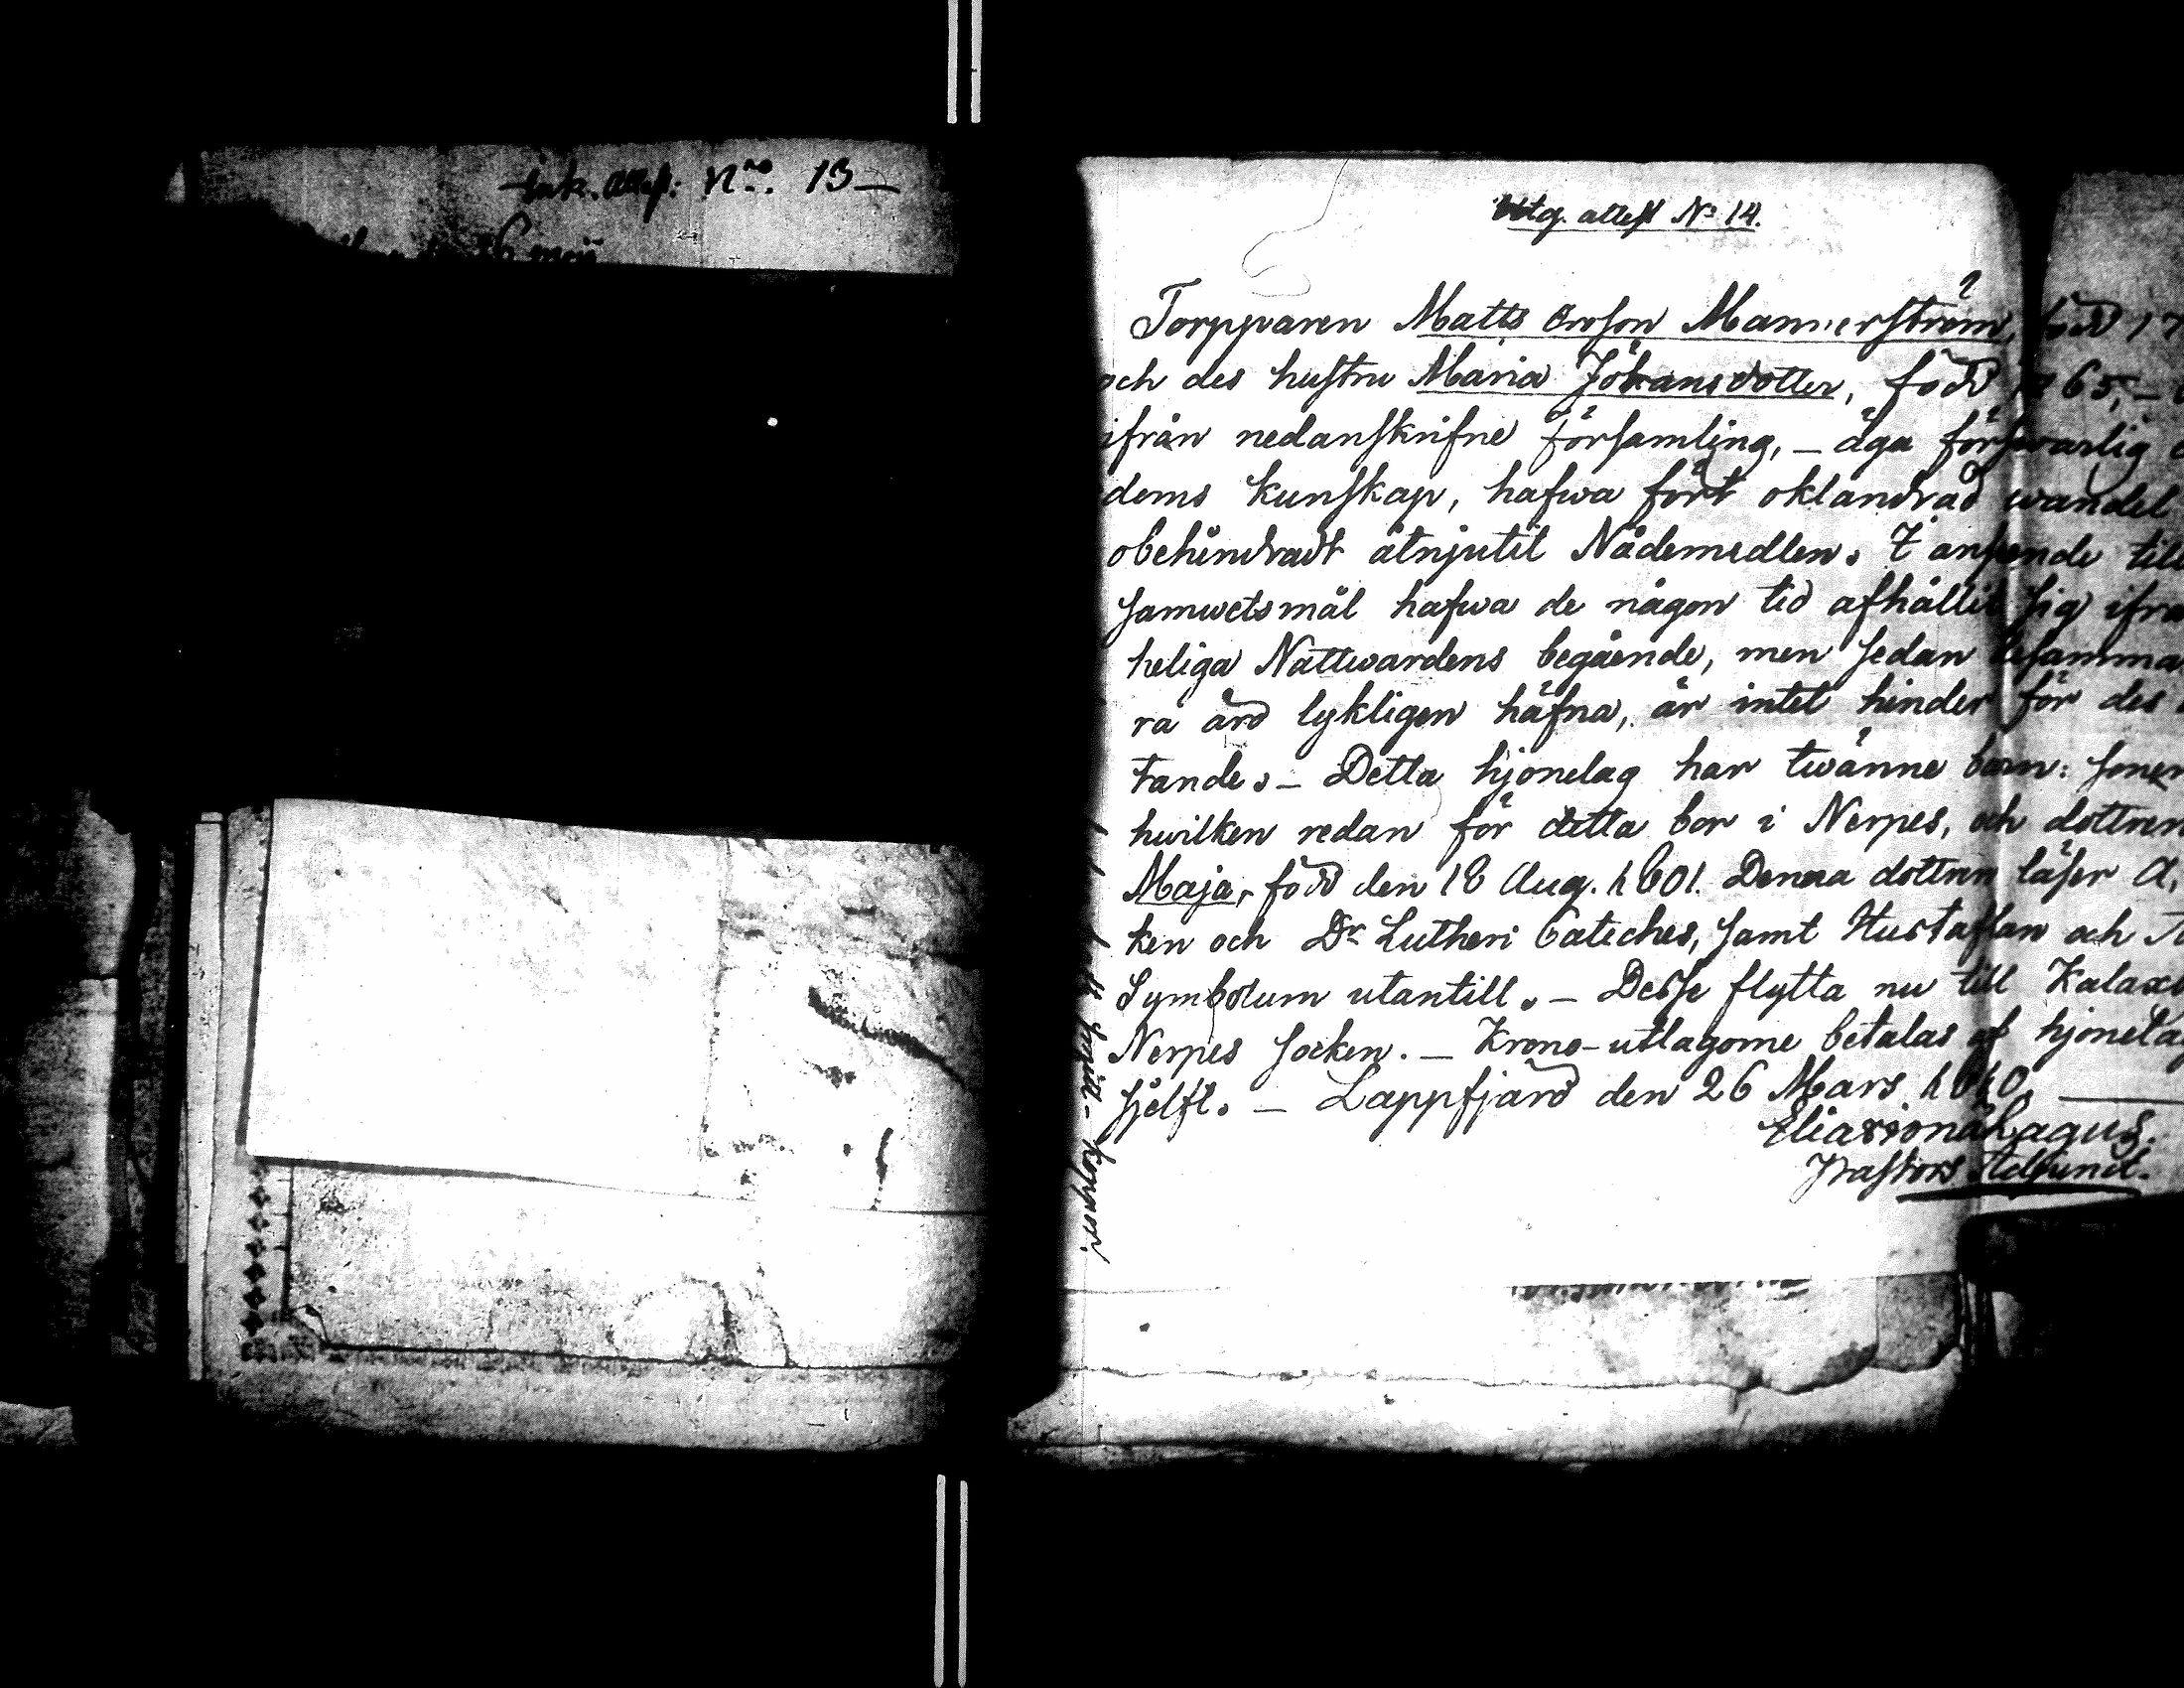 Ink. Attest: Nro. 13 —
Utg. attest No 14.
Torpparen Matts Ersson Mannerström, född 17
och des hustru Maria Johansdotter, född 1765, —
ifrån nedanskrifne Församling, — äga förswarlig
doms kunskap, hafwa fört oklandrad wandel
obehindradt åtnjutit Nådemedlen. I anseende till
samwetsmål hafwa de någon tid afhållit sig ifrå
heliga Nattwardens begående, men sedan desamma
ra äro lykligen häfna, är intet hinder för des
tande. — Detta hjonelag har twänne barn: sonen
hwilken redan för detta bor i Nerpes, och dottren
Maja, född den 18 Aug. 1801. Denna dottren läser A.
ken och Dr Lutheri Catiches, samt Hustaflan och
Symbolum utantill. — Desse flytta nu till Kalax
Nerpes socken. — Krono-utlagorne betalas af hjonela
sjelft. — Lappfjärd den 26 Mars 1810.
Lagus.
Pastors Adjunct.